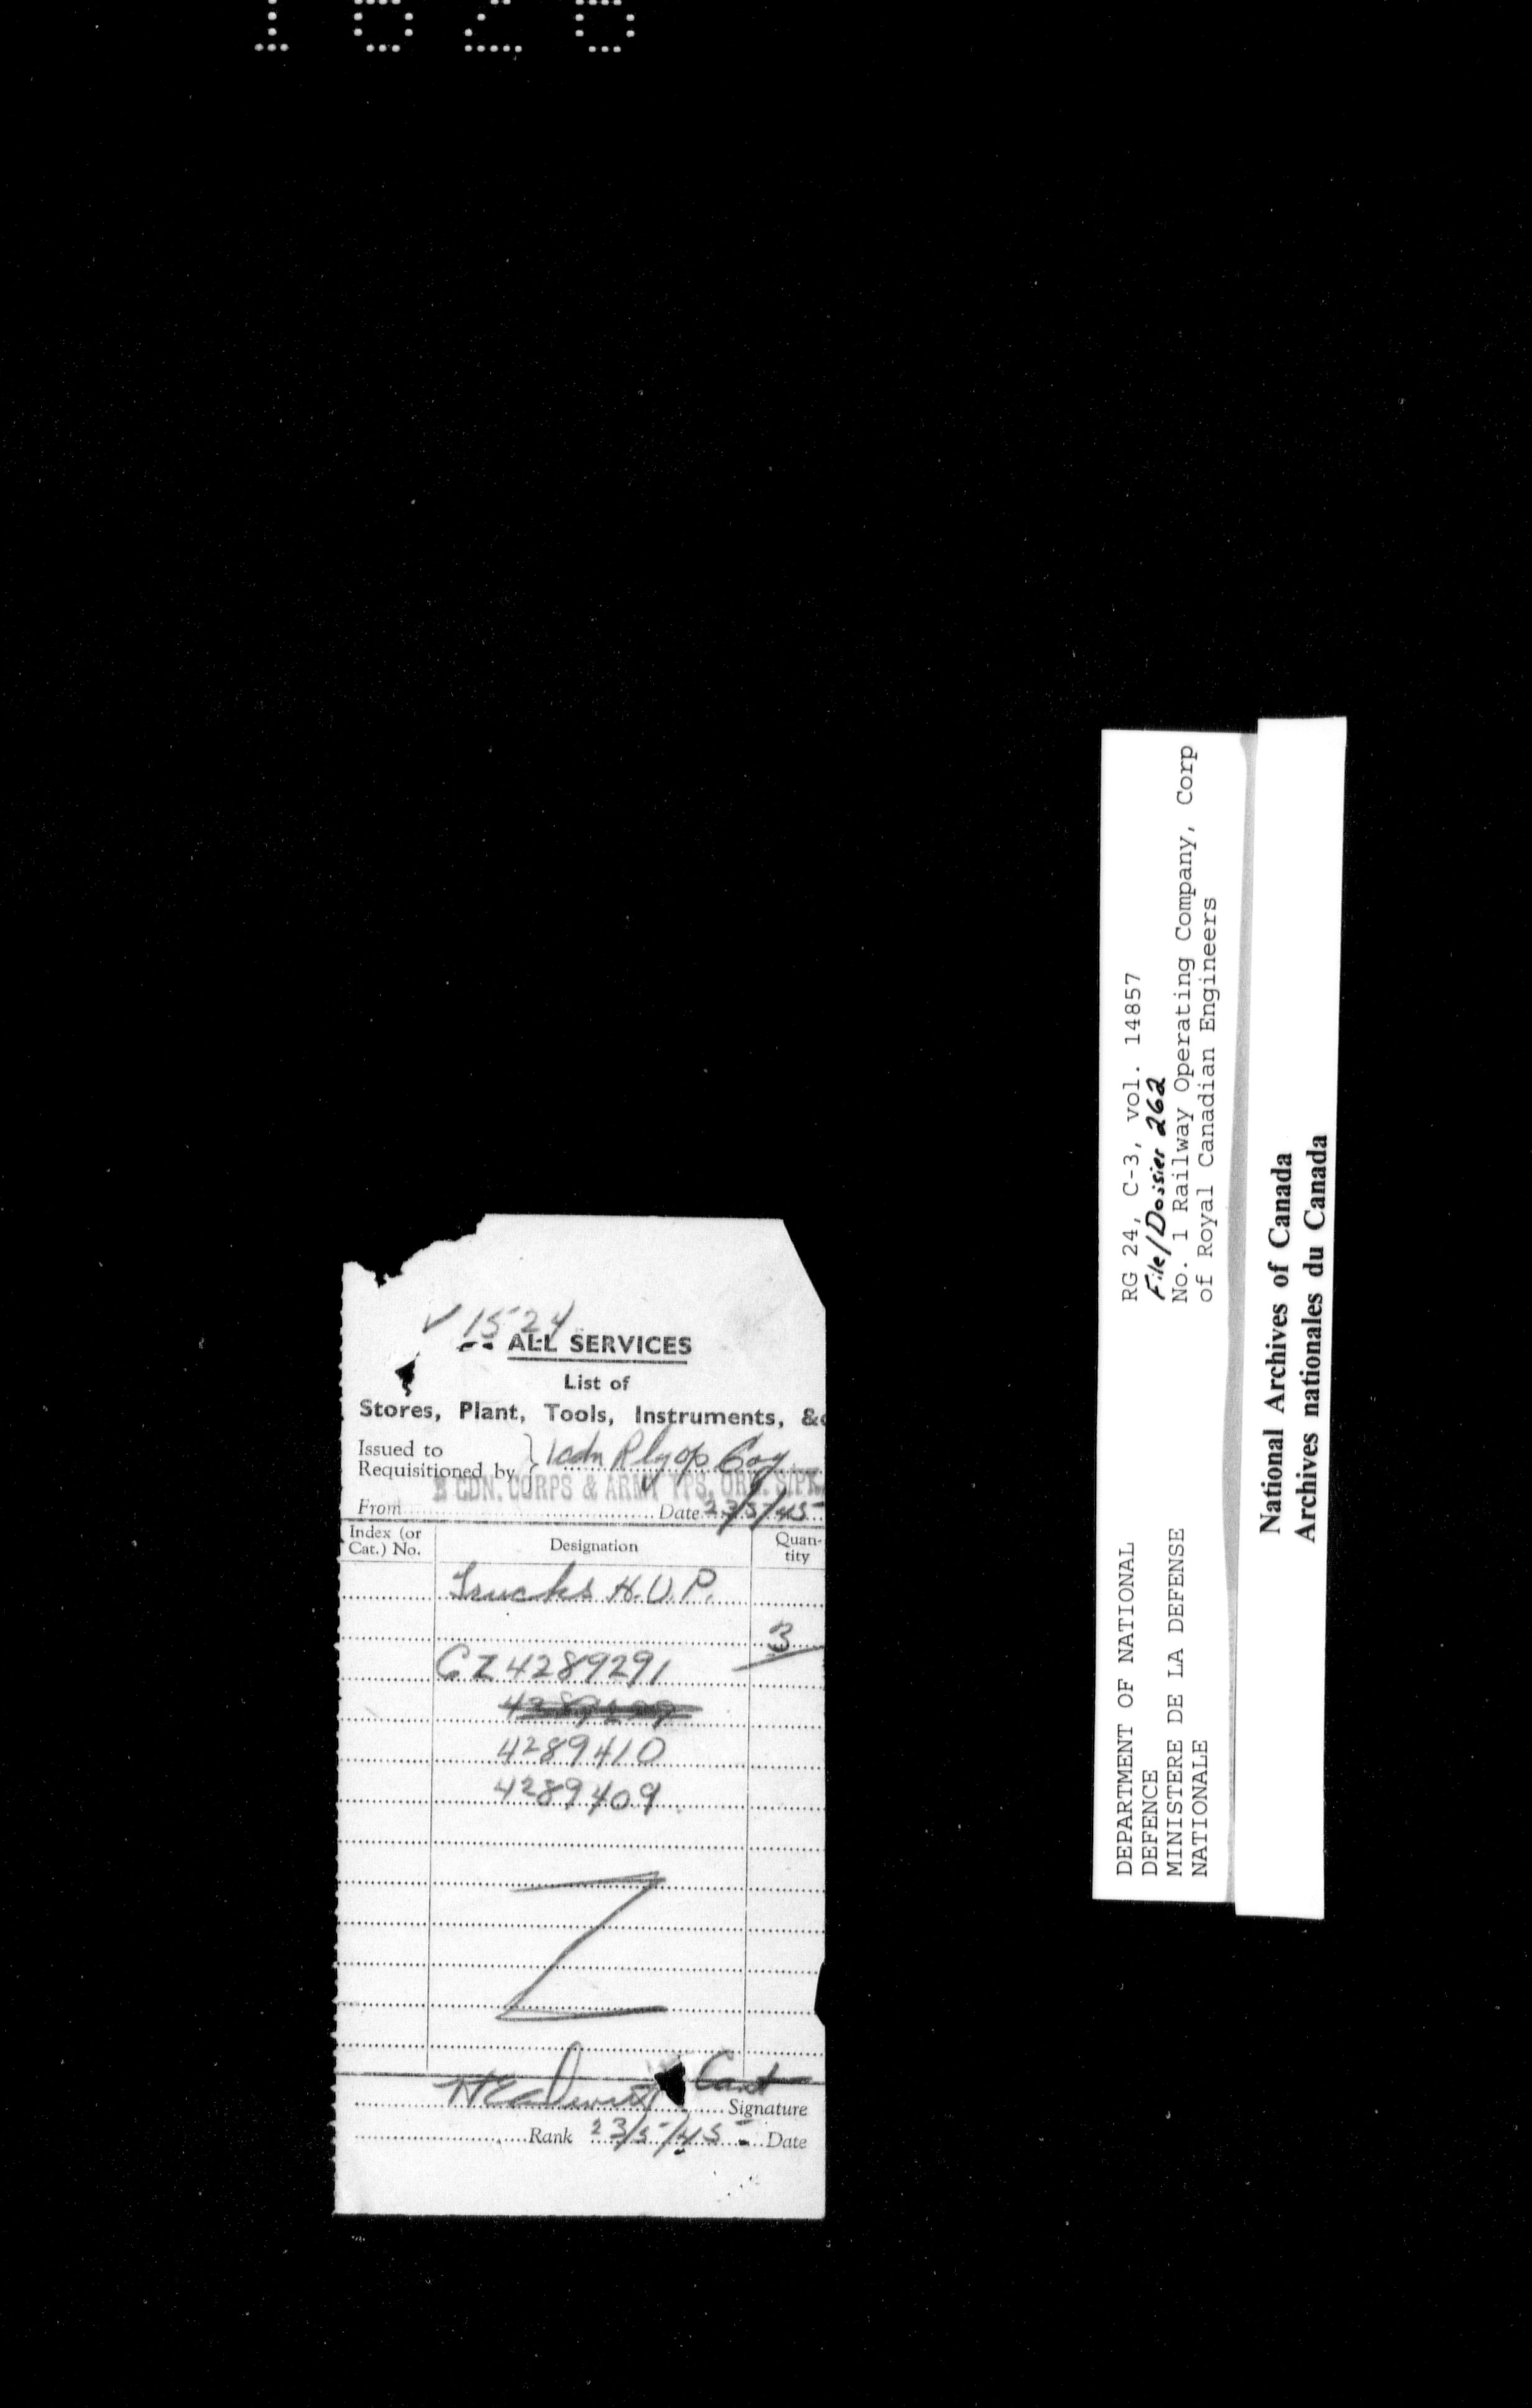 1626
V 1524
ALL SERVICES
List of
Stores, Plant, Tools, Instruments, &c
Issued to
Requisitioned by } 1 Cdn Rly Op Coy
CDN. CORPS & ARMY TPS. ORD. S/PK.
From Date 23/5/45
Index (or Cat.) No. Designation Quantity
Trucks H.U.P.
3
CZ 4289291
4289410
4289409
Capt
Signature
Rank 23/5/45 Date
RG 24, C-3, vol. 14857
File/Dossier 262
No. 1 Railway Operating Company, Corp
of Royal Canadian Engineers
DEPARTMENT OF NATIONAL
DEFENCE
MINISTERE DE LA DEFENSE
NATIONALE
National Archives of Canada
Archives nationales du Canada